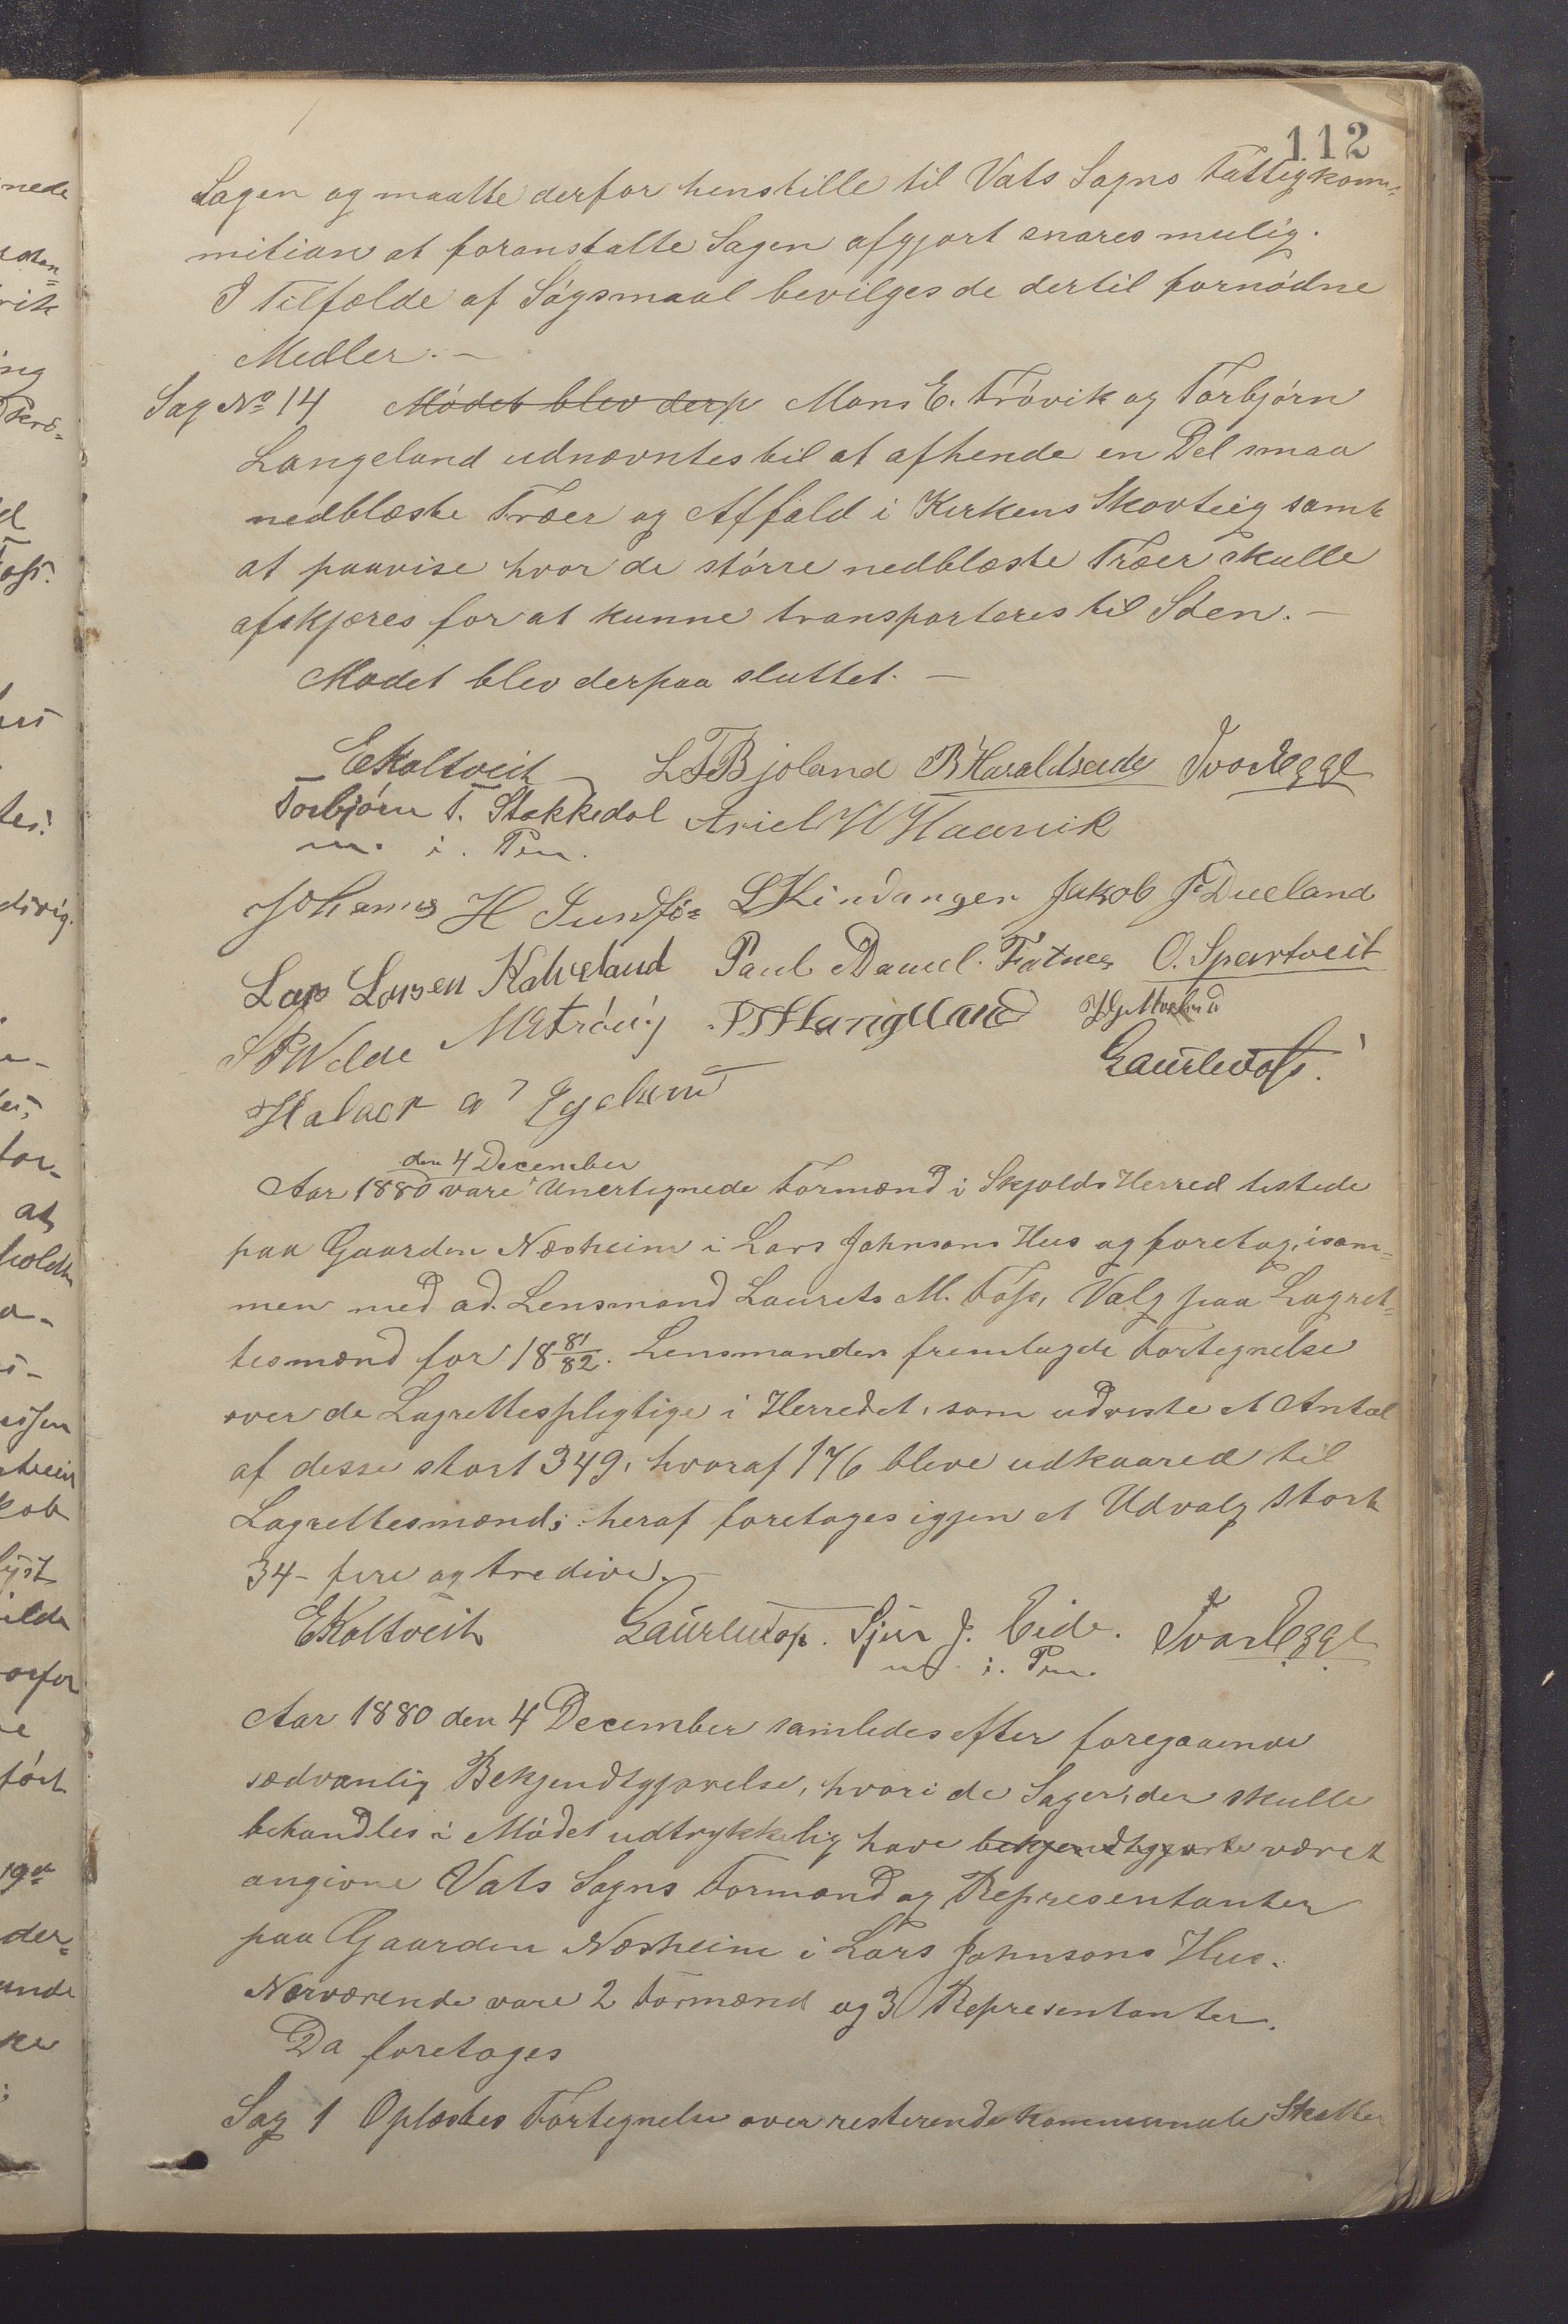 112
Sagen og maatte derfor henstille til Vats Sogns Fattigkom=
mision at foranstalte Sagen afgjort snares mulig.
I Tilfælde af Søgsmaal bevilges de dertil fornødne
Medler. –
Sag No 14 Mødet blev derp Mons E. Trøvik og Torbjørn
Langeland udnævntes til at afhende en Del smaa
nedblæste Træer og Affald i Kirkens Skovteig samt
at paavise hvor de större nedblæste Træer skulle
afskjæres for at kunne transporteres til Søen. –
Mødet blev derpaa sluttet. –
EKoltveit LTBjoland BHaraldseide Ivar Egge
Torbjørn T. Stakkedal Ariel W Haavik
m. i. Pen.
Johannes H Sundfø= LKindangen Jakob F Dueland
Lars Larsen Kalveland Paul Daniel. Fatnes O. Spartveit
METrövig
Halvor
Lauritz Foss.
den 4 December
Aar 1880 vare Unertegnede Formænd i Skjolds Herred tistede
paa Gaarden Næsheim i Lars Johnsons Hus og foretog, isam=
men med ad. Lensmand Laurets M. Foss, Valg paa Lagret=
tesmænd for 18 81/82. Lensmanden fremlagde Fortegnelse
over de Lagrettespligtige i Herredet, som udviste et Antal
af desse stort 349, hvoraf 176 bleve udkaared til
Lagrettesmænd; heraf foretages igjen et Udvalg stort
34 – fire og tredive. –
EKoltveit Lauritz Foss. Sjur J. Eide. Ivar Egge
m. i. Pen.
Aar 1880 den 4 December samledes efter foregaaende
sædvanlig Bekjendtgjørelse, hvori de Sager, der skulle
behandles i Mødet udtrykkelig have bekjendtgjorte været
angivne Vats Sogns Formænd og Representanter
paa Gaarden Næsheim i Lars Johnsons Hus.
Nærværende vare 2 Formænd og 3 Representanter.
Da foretoges
Sag 1 Oplæstes Fortegnelse over resterende kommunale Skatter